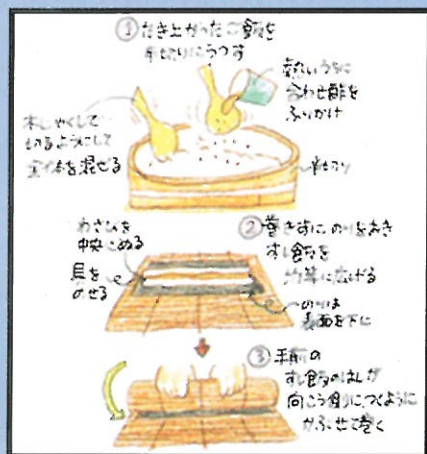 ① たき上がったご飯を
半切りにうつす
熱いうちに
合わせ酢を
ふりかけ
木しゃくしで
切るようにして
全体を混ぜる
半切り
② 巻きすにのりをおき
すし飯を
均等に広げる
わさびを
中央にぬる
具を
のせる
のりは
表面を下に
③ 手前の
すし飯のはしが
向こう側につくように
かぶせて巻く